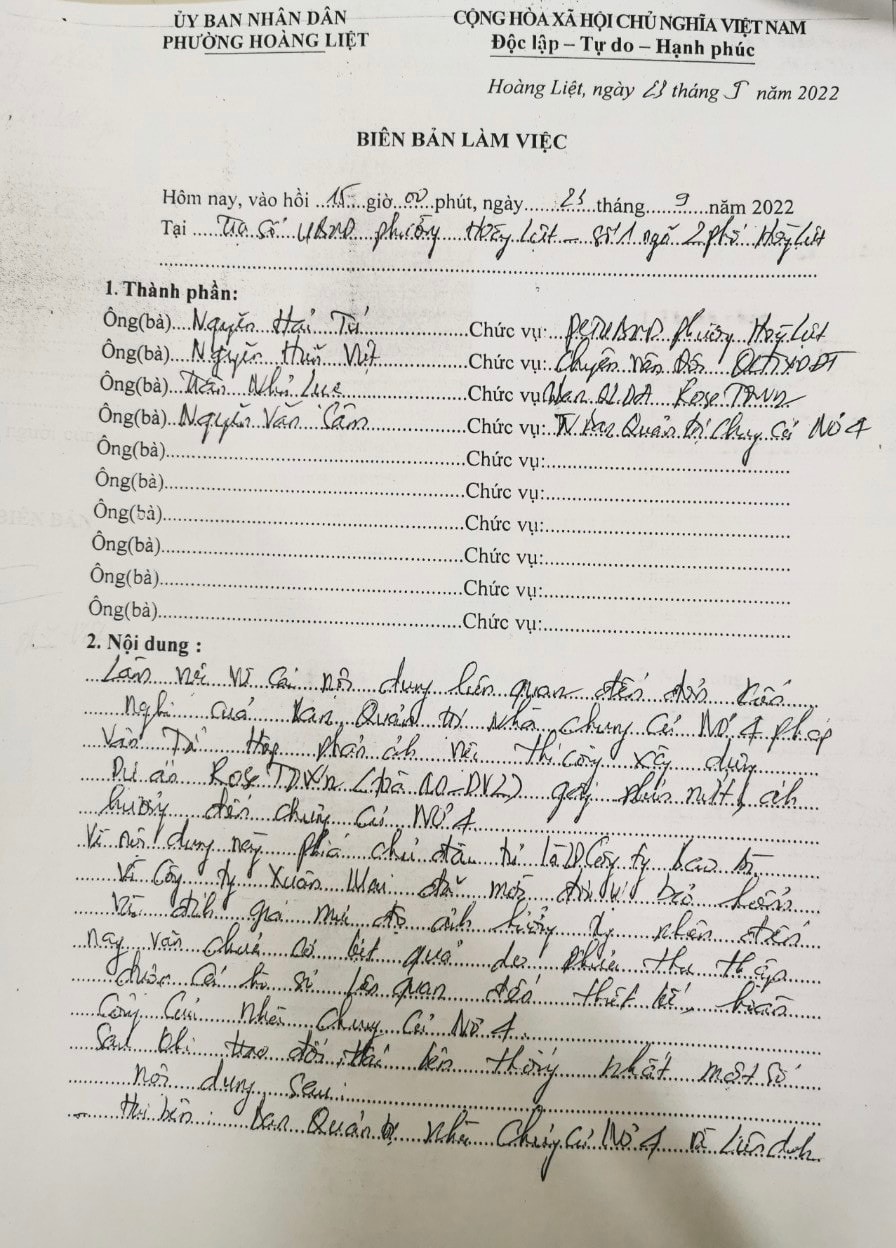 ỦY BAN NHÂN DÂN
PHƯỜNG HOÀNG LIỆT
CỘNG HÒA XÃ HỘI CHỦ NGHĨA VIỆT NAM
Độc lập – Tự do – Hạnh phúc
Hoàng Liệt, ngày 23 tháng 9 năm 2022
BIÊN BẢN LÀM VIỆC
Hôm nay, vào hồi 15 giờ 00 phút, ngày 23 tháng 9 năm 2022
Tại Trụ sở UBND phường Hoàng Liệt – số 1 ngõ 2 phố Hoàng Liệt
1. Thành phần:
Ông(bà) Nguyễn Hải Tú Chức vụ: PCTUBND phường Hoàng Liệt
Ông(bà) Nguyễn Hữu Việt Chức vụ: QLTTXDĐT
Ông(bà) Trần Như Lục Chức vụ: Ban QLDA Rose Town
Ông(bà) Nguyễn Văn Chức vụ: Ban Quản trị Chung Cư NƠ 4
Ông(bà) Chức vụ:
Ông(bà) Chức vụ:
Ông(bà) Chức vụ:
Ông(bà) Chức vụ:
Ông(bà) Chức vụ:
Ông(bà) Chức vụ:
2. Nội dung :
Làm việc về các nội dung liên quan đến đơn kiến
nghị của Ban Quản trị Nhà chung cư NƠ 4 Pháp
Vân Tứ Hiệp phản ánh việc thi công xây dựng
Dự án Rose Town gây nứt, ảnh
hưởng đến chung cư NƠ 4
Về nội dung này phía chủ đầu tư là Công ty bao bì
và Công ty Xuân Mai đã mời đơn vị bảo hiểm
về đánh giá mức độ ảnh hưởng nhân đến
nay vẫn chưa có kết quả do thu thập
được các hồ sơ liên quan đến thiết kế, hoàn
công của nhà chung cư NƠ 4.
Sau khi trao đổi, hai bên thống nhất một số
nội dung sau:
Hai bên: Ban Quản trị nhà chung cư NƠ 4 và Liên danh